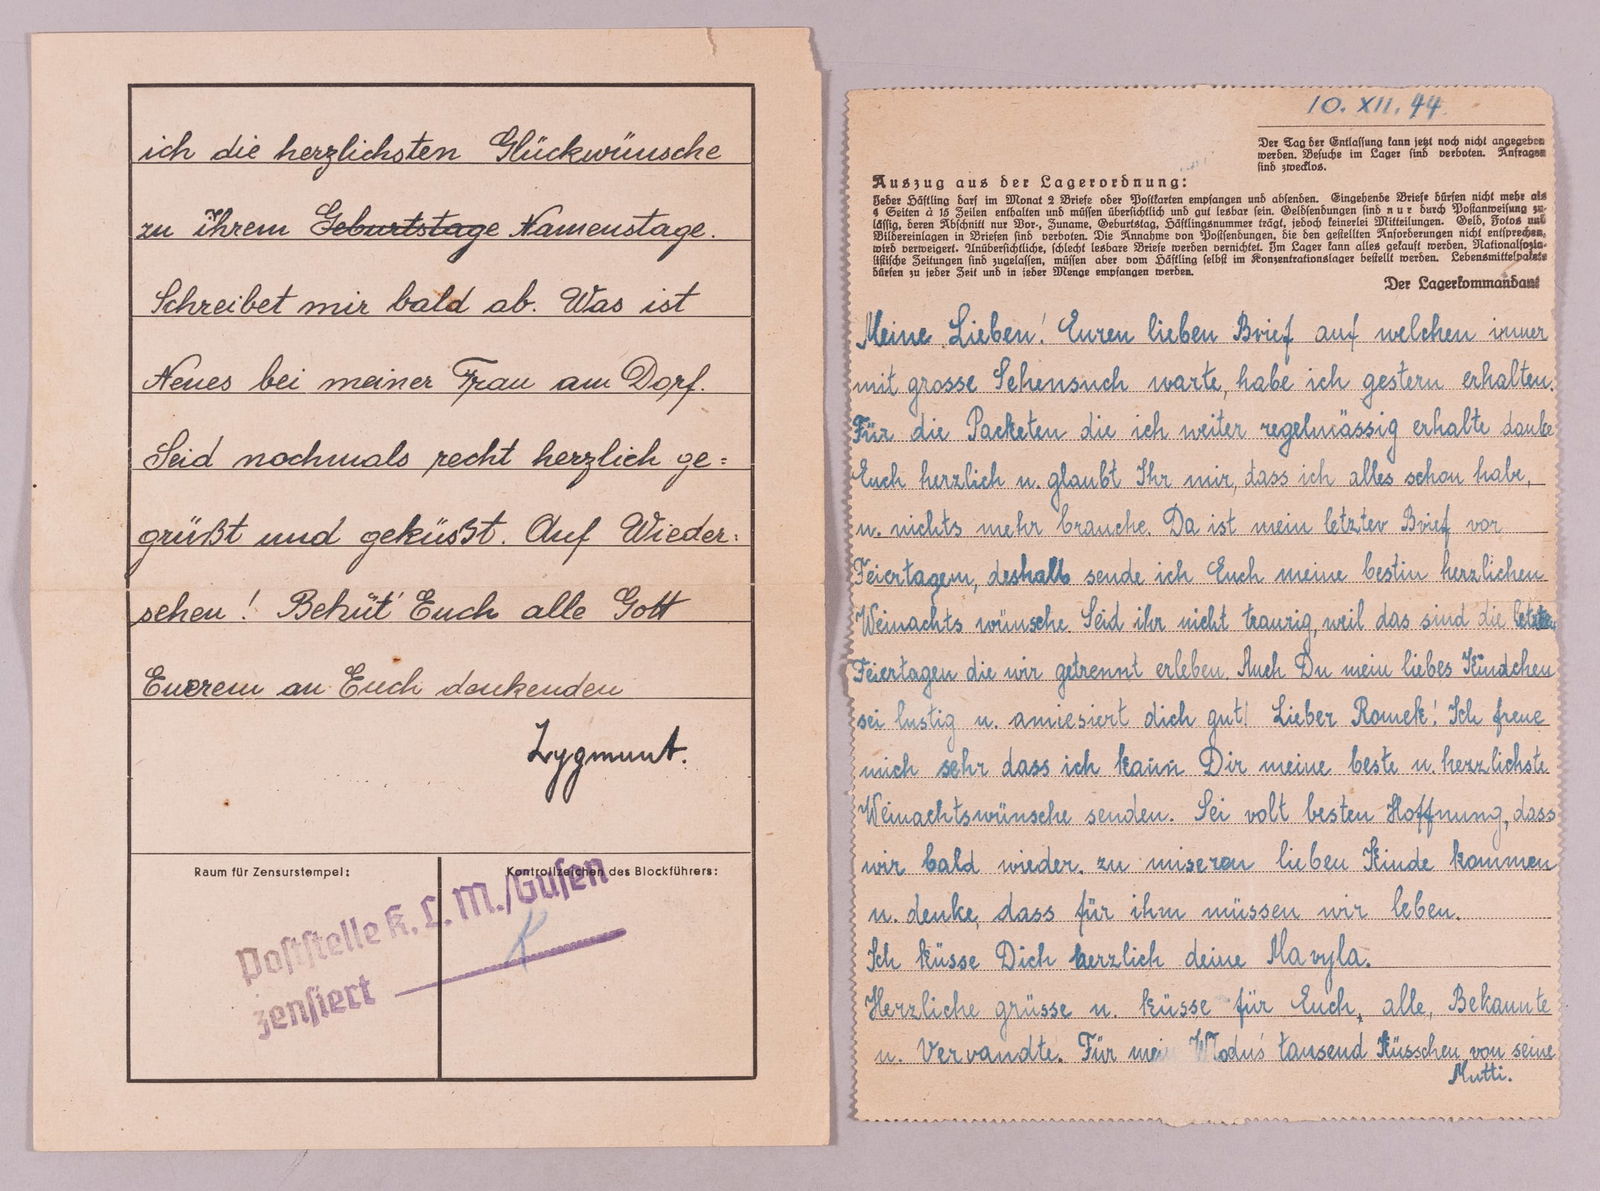 ich die herzlichsten Glückwünsche
zu ihrem Geburtstage Namenstage.
Schreibet mir bald ab. Was ist
Neues bei meiner Frau am Dorf.
Seid nochmals recht herzlich ge=
grüßt und geküsst. Auf Wieder:
sehen! Behüt' Euch alle Gott
Euerem an Euch denkenden
Zygmunt.
Raum für Zensurstempel:
Kontrollzeichen des Blockführers:
Poststelle K. L. M./Gusen
zensiert
10. XII. 44
Der Tag der Entlassung kann jetzt noch nicht angegeben
werden. Besuche im Lager sind verboten. Anfragen
sind zwecklos.
Auszug aus der Lagerordnung:
Jeder Häftling darf im Monat 2 Briefe oder Postkarten empfangen und absenden. Eingehende Briefe dürfen nicht mehr als
4 Seiten à 15 Zeilen enthalten und müssen übersichtlich und gut lesbar sein. Geldsendungen sind nur durch Postanweisung zu-
lässig, deren Abschnitt nur Vor-, Zuname, Geburtstag, Häftlingsnummer trägt, jedoch keinerlei Mitteilungen. Geld, Fotos und
Bildereinlagen in Briefen sind verboten. Die Annahme von Postsendungen, die den gestellten Anforderungen nicht entsprechen,
wird verweigert. Unübersichtliche, schlecht lesbare Briefe werden vernichtet. Im Lager kann alles gekauft werden. Nationalsozia-
listische Zeitungen sind zugelassen, müssen aber vom Häftling selbst im Konzentrationslager bestellt werden. Lebensmittelpakete
dürfen zu jeder Zeit und in jeder Menge empfangen werden.
Der Lagerkommandant
Meine Lieben! Euren lieben Brief auf welchen immer
mit grosse Sehensuch warte, habe ich gestern erhalten.
Für die Packeten die ich weiter regelmässig erhalte danke
Euch herzlich u. glaubt Ihr mir, dass ich alles schon habe,
u. nichts mehr brauche. Da ist mein letzter Brief vor
Feiertagen, deshalb sende ich Euch meine bestin herzlichen
Weinachts wünsche. Seid ihr nicht traurig, weil das sind die letzten
Feiertagen die wir getrennt erleben. Auch Du mein liebes Kindchen
sei lustig u. amiesiert dich gut! Lieber Romek! Ich freue
mich sehr dass ich kann Dir meine beste u. herzlichste
Weinachtswünsche senden. Sei volt besten Hoffnung, dass
wir bald wieder zu unseren lieben Kinde kommen
u. denke, dass für ihm müssen wir leben.
Ich küsse Dich herzlich deine Maryla.
Herzliche grüsse u. küsse für Euch, alle, Bekannte
u. Vervandte. Für mein Wlodus tausend Küsschen von seine
Mutti.